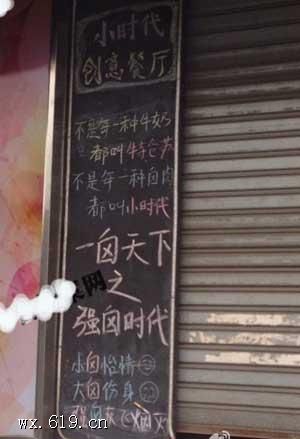 小时代
创意餐厅
不是每一种牛奶
都叫特仑苏
不是每一种囟肉
都叫小时代
一囟天下
之
强囟时代
小囟怡情
大囟伤身
强囟灰飞烟灭
wx.619.cn